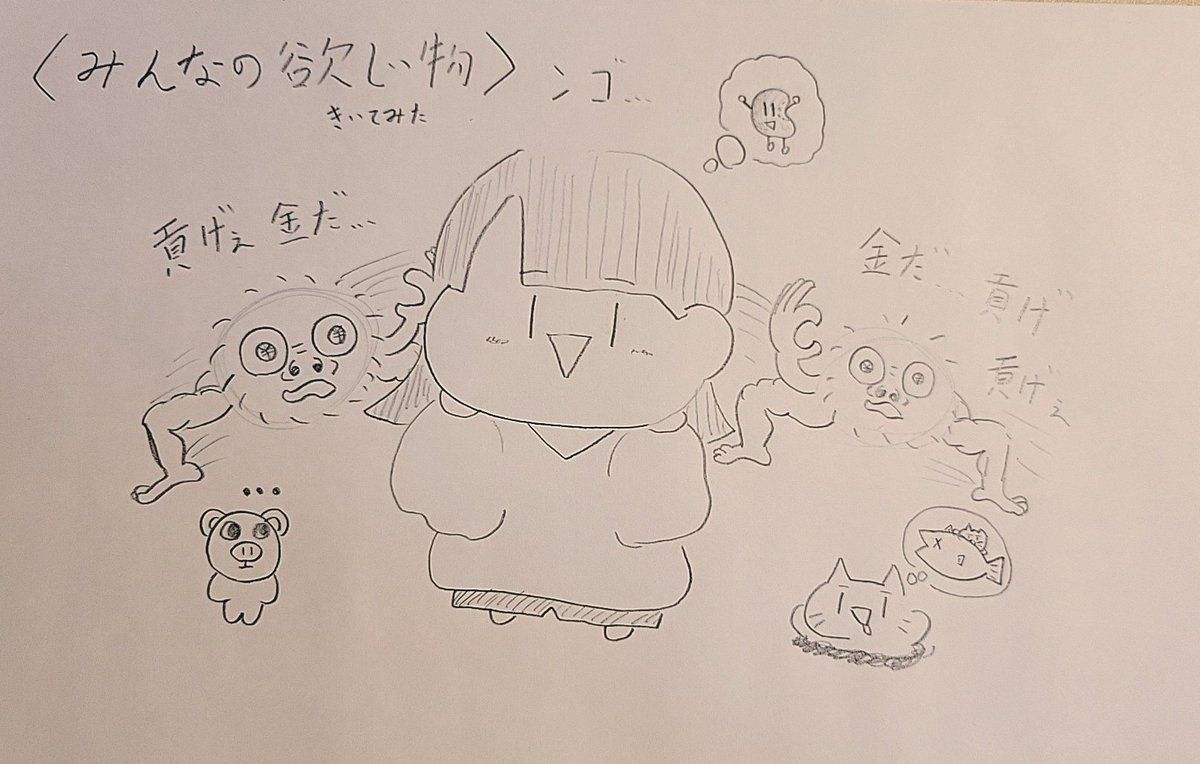 〈みんなの欲しい物〉ンゴ…
きいてみた
貢げぇ 金だ…
金だ…
貢げ
貢げぇ
…